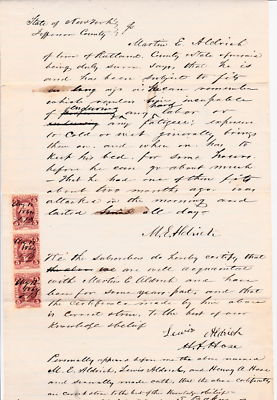 State of New York
Jefferson County } ss
Martin E. Aldrich
of town of Rutland County & State aforesaid
being duly sworn says, that he is
and has been subject to fits
as long ago as he can remember
which renders him incapable
of enduring any labor
or fatigue; exposure
to Cold or wet generally brings
them on, and when on has to
keep his bed for some hours
before he can go about much
That he had one of these fits
about two months ago was
attacked in the morning and
lasted all day
M. E. Aldrich
We the subscribers do hereby certify that
we are well acquainted
with Martin E Aldrich and have
been for some years past, and that
the Certificate made by him above
is correct & true. To the best of our
Knowledge & belief
Lewis Aldrich
H. A. Hose
Personally appeared before me the above named
M. E. Aldrich, Lewis Aldrich, and Henry A Hose
and severally made oath, that the above certificates
are correct & true to the best of their Knowledge & belief